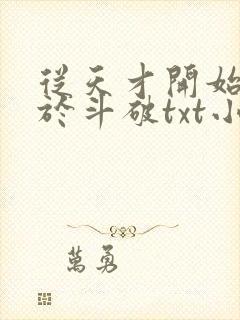 從天才開始
於斗破txt小
萬勇